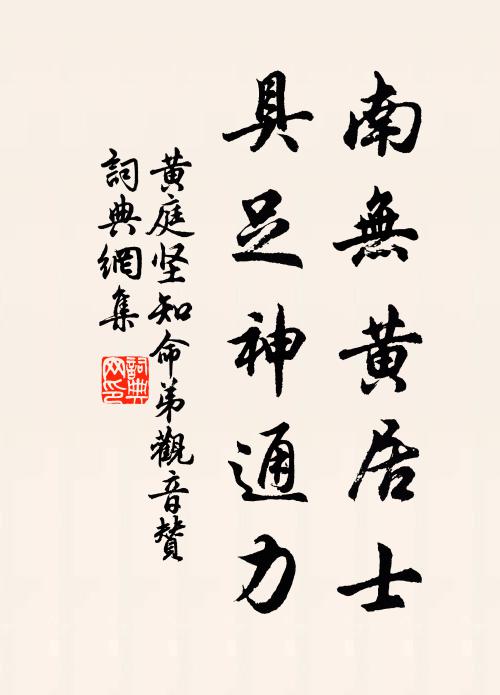 南無黄居士
具足神通力
黄庭坚知命弟觀音贊
詞典網集
詞典
网印